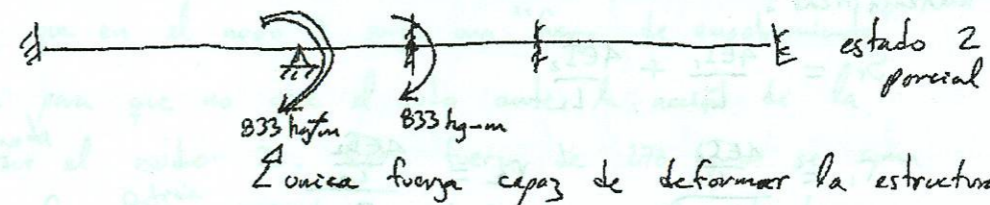 estado 2
parcial
833 kg-m 833 kg-m
unica fuerza capaz de deformar la estructura